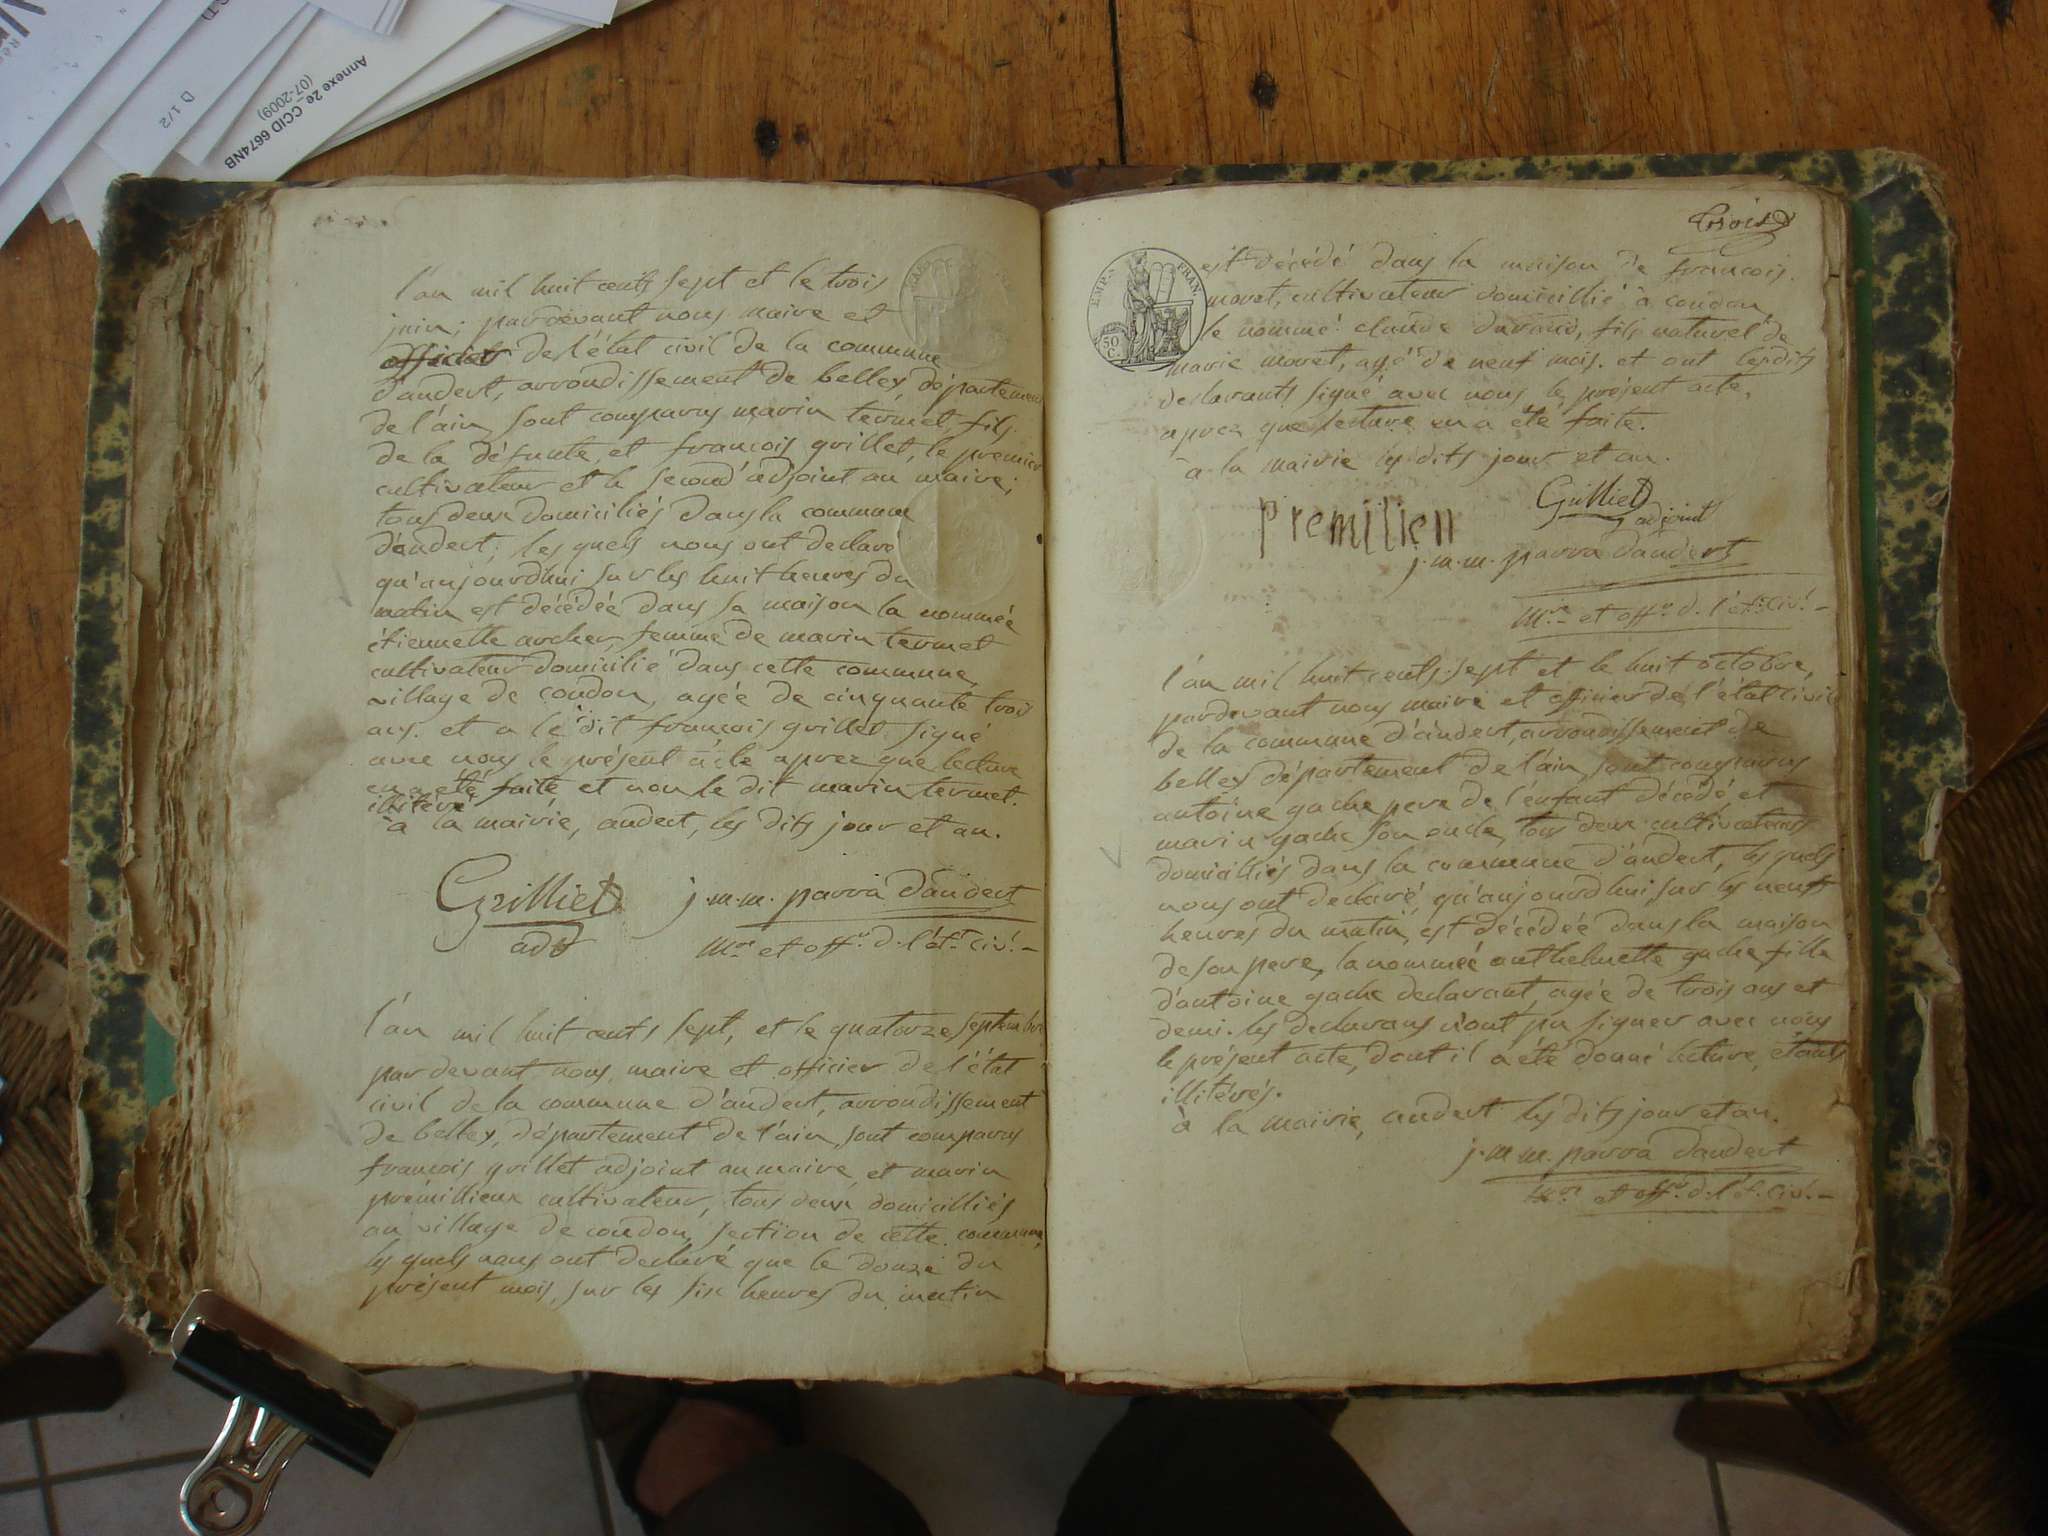 Annexe 2e_CCID 6674NB
(07-2009)
D 1/2
l'an mil huit cents sept et le trois
juin; pardevant nous maire et
officier de l'état civil de la commune
d'andert, arrondissement de belley, département
de l'ain, sont comparus marin termet, fils
de la défunte, et françois grillet, le premier
cultivateur et le second adjoint au maire;
tous deux domiciliés dans la commune
d'andert; les quels nous ont declaré
qu'aujourd'hui sur les huit heures du
matin est décédée dans sa maison la nommée
étiennette archer, femme de marin termet
cultivateur domicilié dans cette commune,
village de coudon, agée de cinquante trois
ans. et a le dit françois grillet signé
avec nous le présent acte aprez que lecture
en a été faite et non le dit marin termet.
illitéré
à la mairie, andert, les dits jour et an.
Grilliet j.m.m. parra d'andert
adt mre et offr d. l'ét. civ.
l'an mil huit cents sept, et le quatorze septembre
pardevant nous maire et officier de l'état
civil de la commune d'andert, arrondissement
de belley, département de l'ain, sont comparus
françois grillet adjoint au maire, et marin
prémillieux cultivateur, tous deux domiciliés
au village de coudon, section de cette commune,
les quels nous ont declaré que le douze du
présent mois, sur les six heures du matin
trois
EMP. FRAN.
50
C.
est décédé dans la maison de françois
moret, cultivateur domicillié à coudon,
le nommé claude durand, fils naturel de
marie moret, agé de neuf mois. et ont lesdits
declarants signé avec nous le présent acte,
aprez que lecture en a été faite.
à la mairie les dits jour et an.
premilien Grilliet
adjoint
j.m.m. parra d'andert
mre et offr d. l'ét. civ.
l'an mil huit cents sept et le huit octobre,
pardevant nous maire et officier de l'état civil
de la commune d'andert, arrondissement de
belley département de l'ain, sont comparus
antoine gache pere de l'enfant décédé et
marin gache son oncle, tous deux cultivateurs
domicilliés dans la commune d'andert, les quels
nous ont declaré qu'aujourd'hui, sur les neuf
heures du matin, est décédée dans la maison
de son pere, la nommée anthelmette gache fille
d'antoine gache declarant, agée de trois ans et
demi. les declarans n'ont pu signer avec nous
le présent acte, dont il a été donné lecture, étants
illitérés.
à la mairie, andert les dits jour et an.
j.m.m. parra d'andert
mre et offr d. l'ét. civ.